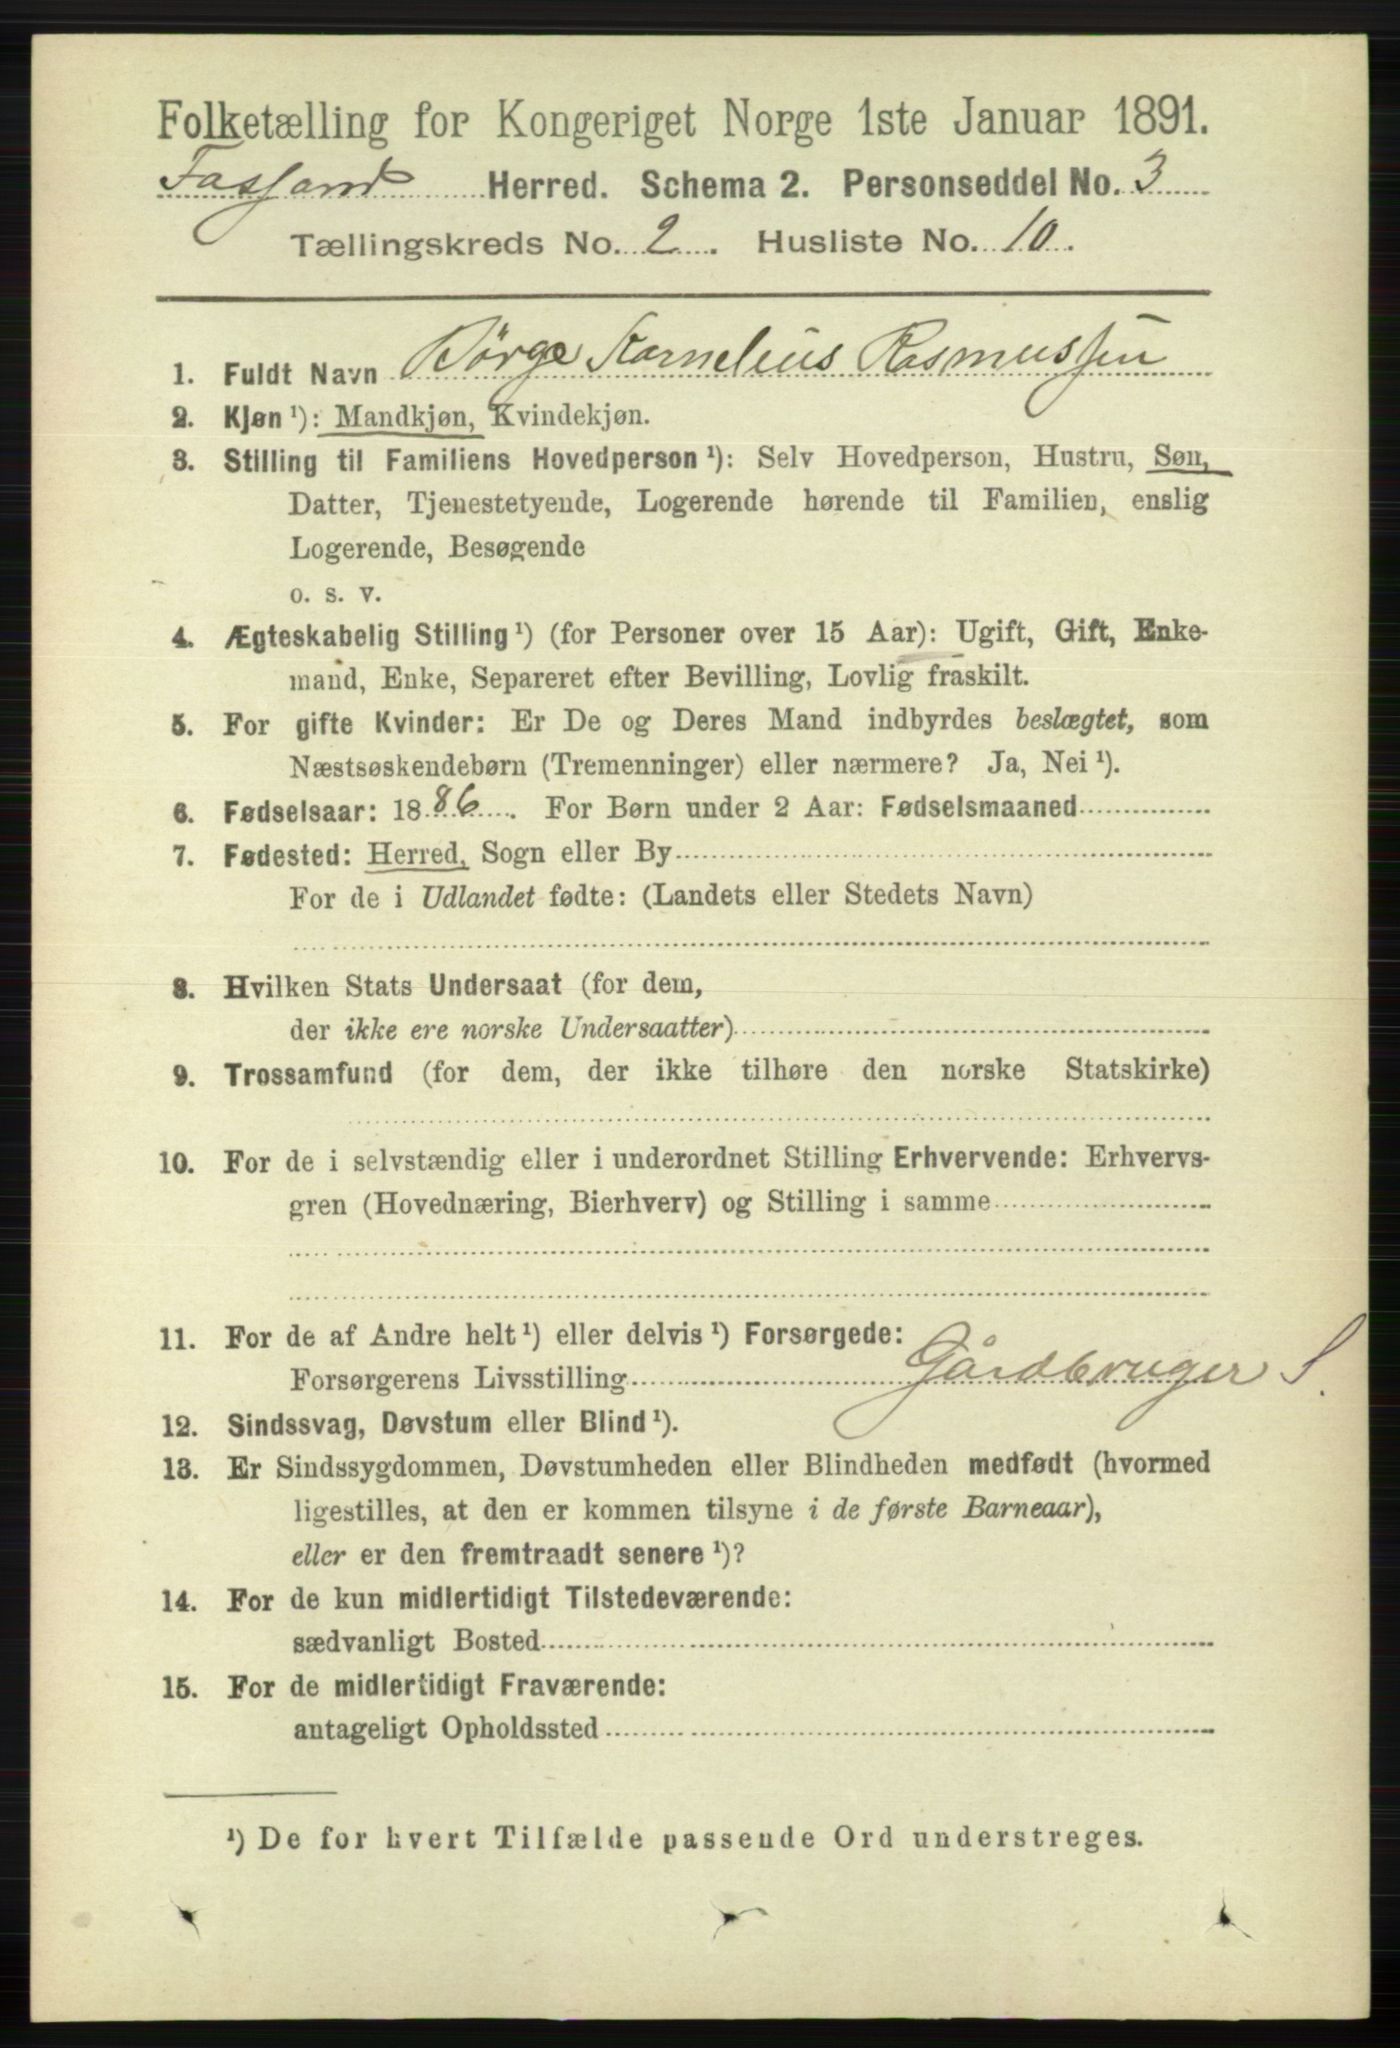 Folketælling for Kongeriget Norge 1ste Januar 1891.
Fossand Herred. Schema 2. Personseddel No. 3
Tællingskreds No. 2. Husliste No. 10.
1. Fuldt Navn Børge Kornelius Rasmussen
2. Kjøn ¹): Mandkjøn, Kvindekjøn.
3. Stilling til Familiens Hovedperson ¹): Selv Hovedperson, Hustru, Søn,
Datter, Tjenestetyende, Logerende hørende til Familien, enslig
Logerende, Besøgende
o. s. v.
4. Ægteskabelig Stilling ¹) (for Personer over 15 Aar): Ugift, Gift, Enke-
mand, Enke, Separeret efter Bevilling, Lovlig fraskilt.
5. For gifte Kvinder: Er De og Deres Mand indbyrdes beslægtet, som
Næstsøskendebørn (Tremenninger) eller nærmere? Ja, Nei ¹).
6. Fødselsaar: 1886. For Børn under 2 Aar: Fødselsmaaned
7. Fødested: Herred, Sogn eller By
For de i Udlandet fødte: (Landets eller Stedets Navn)
8. Hvilken Stats Undersaat (for dem,
der ikke ere norske Undersaatter)
9. Trossamfund (for dem, der ikke tilhøre den norske Statskirke)
10. For de i selvstændig eller i underordnet Stilling Erhvervende: Erhvervs-
gren (Hovednæring, Bierhverv) og Stilling i samme
11. For de af Andre helt ¹) eller delvis ¹) Forsørgede:
Forsørgerens Livsstilling Gårdbruger S.
12. Sindssvag, Døvstum eller Blind ¹).
13. Er Sindssygdommen, Døvstumheden eller Blindheden medfødt (hvormed
ligestilles, at den er kommen tilsyne i de første Barneaar),
eller er den fremtraadt senere ¹)?
14. For de kun midlertidigt Tilstedeværende:
sædvanligt Bosted
15. For de midlertidigt Fraværende:
antageligt Opholdssted
¹) De for hvert Tilfælde passende Ord understreges.